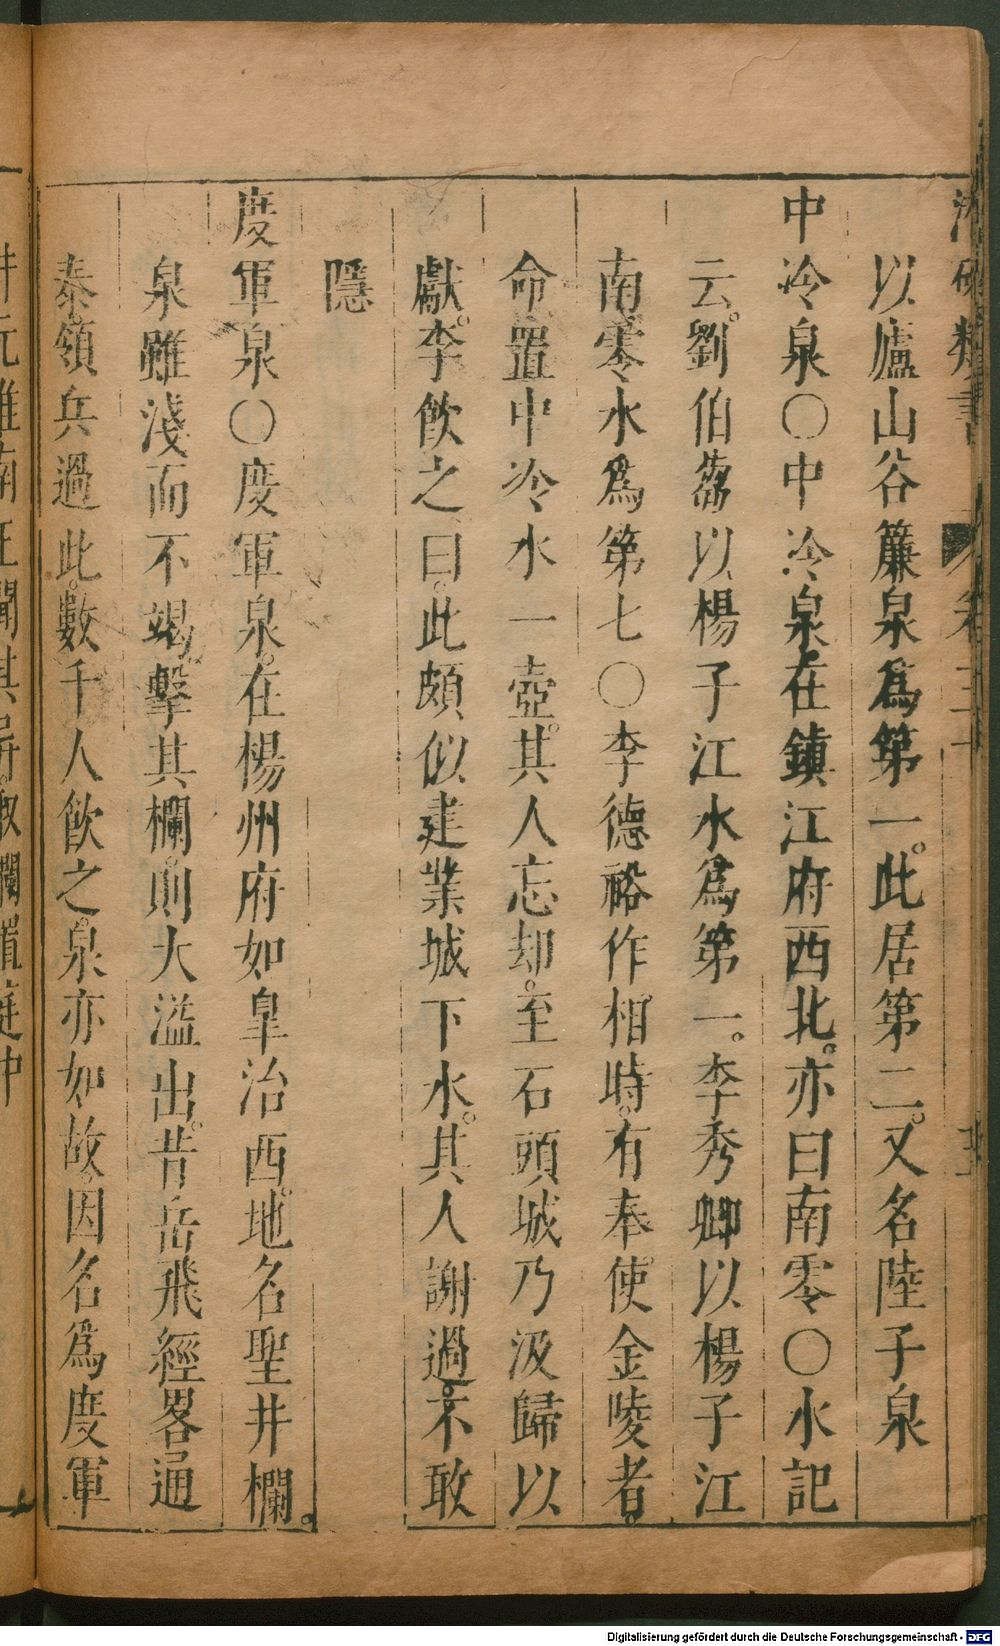 以廬山谷簾泉爲第一。此居第二。又名陸子泉
中冷泉〇中冷泉。在鎮江府西北。亦曰南零〇水記
云。劉伯芻以楊子江水爲第一。李秀卿以楊子江
南零水爲第七〇李德裕作相時。有奉使金陵者。
命置中冷水一壺。其人忘却。至石頭城乃汲歸以
獻。李飲之曰。此頗似建業城下水。其人謝過。不敢
隱
度軍泉〇度軍泉。在楊州府如臯治西。地名聖井欄。
泉雖淺而不竭。擊其欄。則大溢出。昔岳飛經畧通
泰。領兵過此。數千人飲之。泉亦如故。因名爲度軍
類書
卷三十
井元
南
聞其
欄置庭中
Digitalisierung gefördert durch die Deutsche Forschungsgemeinschaft - DFG